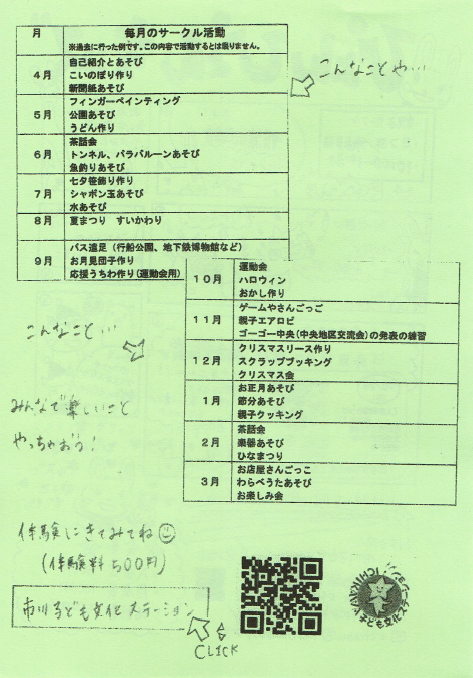 月 毎月のサークル活動
※過去に行った例です。この内容で活動するとは限りません。
4月
自己紹介とあそび
こいのぼり作り
新聞紙あそび
こんなことや…
5月
フィンガーペインティング
公園あそび
うどん作り
6月
茶話会
トンネル、パラバルーンあそび
魚釣りあそび
7月
七夕笹飾り作り
シャボン玉あそび
水あそび
8月
夏まつり すいかわり
9月
バス遠足（行船公園、地下鉄博物館など）
お月見団子作り
応援うちわ作り（運動会用）
10月
運動会
ハロウィン
おかし作り
11月
ゲームやさんごっご
親子エアロビ
ゴーゴー中央（中央地区交流会）の発表の練習
12月
クリスマスリース作り
スクラップブッキング
クリスマス会
1月
お正月あそび
節分あそび
親子クッキング
2月
茶話会
楽器あそび
ひなまつり
3月
お店屋さんごっこ
わらべうたあそび
お楽しみ会
こんなこと…
みんなで楽しいこと
やっちゃおう！
体験にきてみてね
（体験料500円）
市川子ども文化ステーション
CLICK